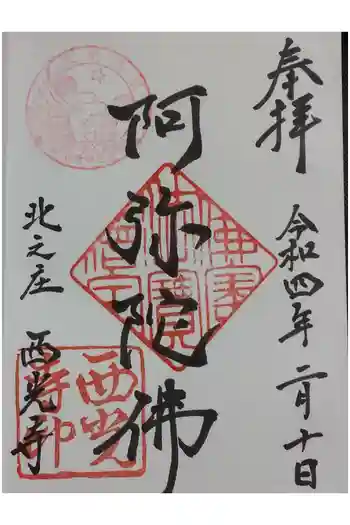 奉拝
令和四年 二月十日
阿弥陀佛
北之庄
西光寺
西光
寺印